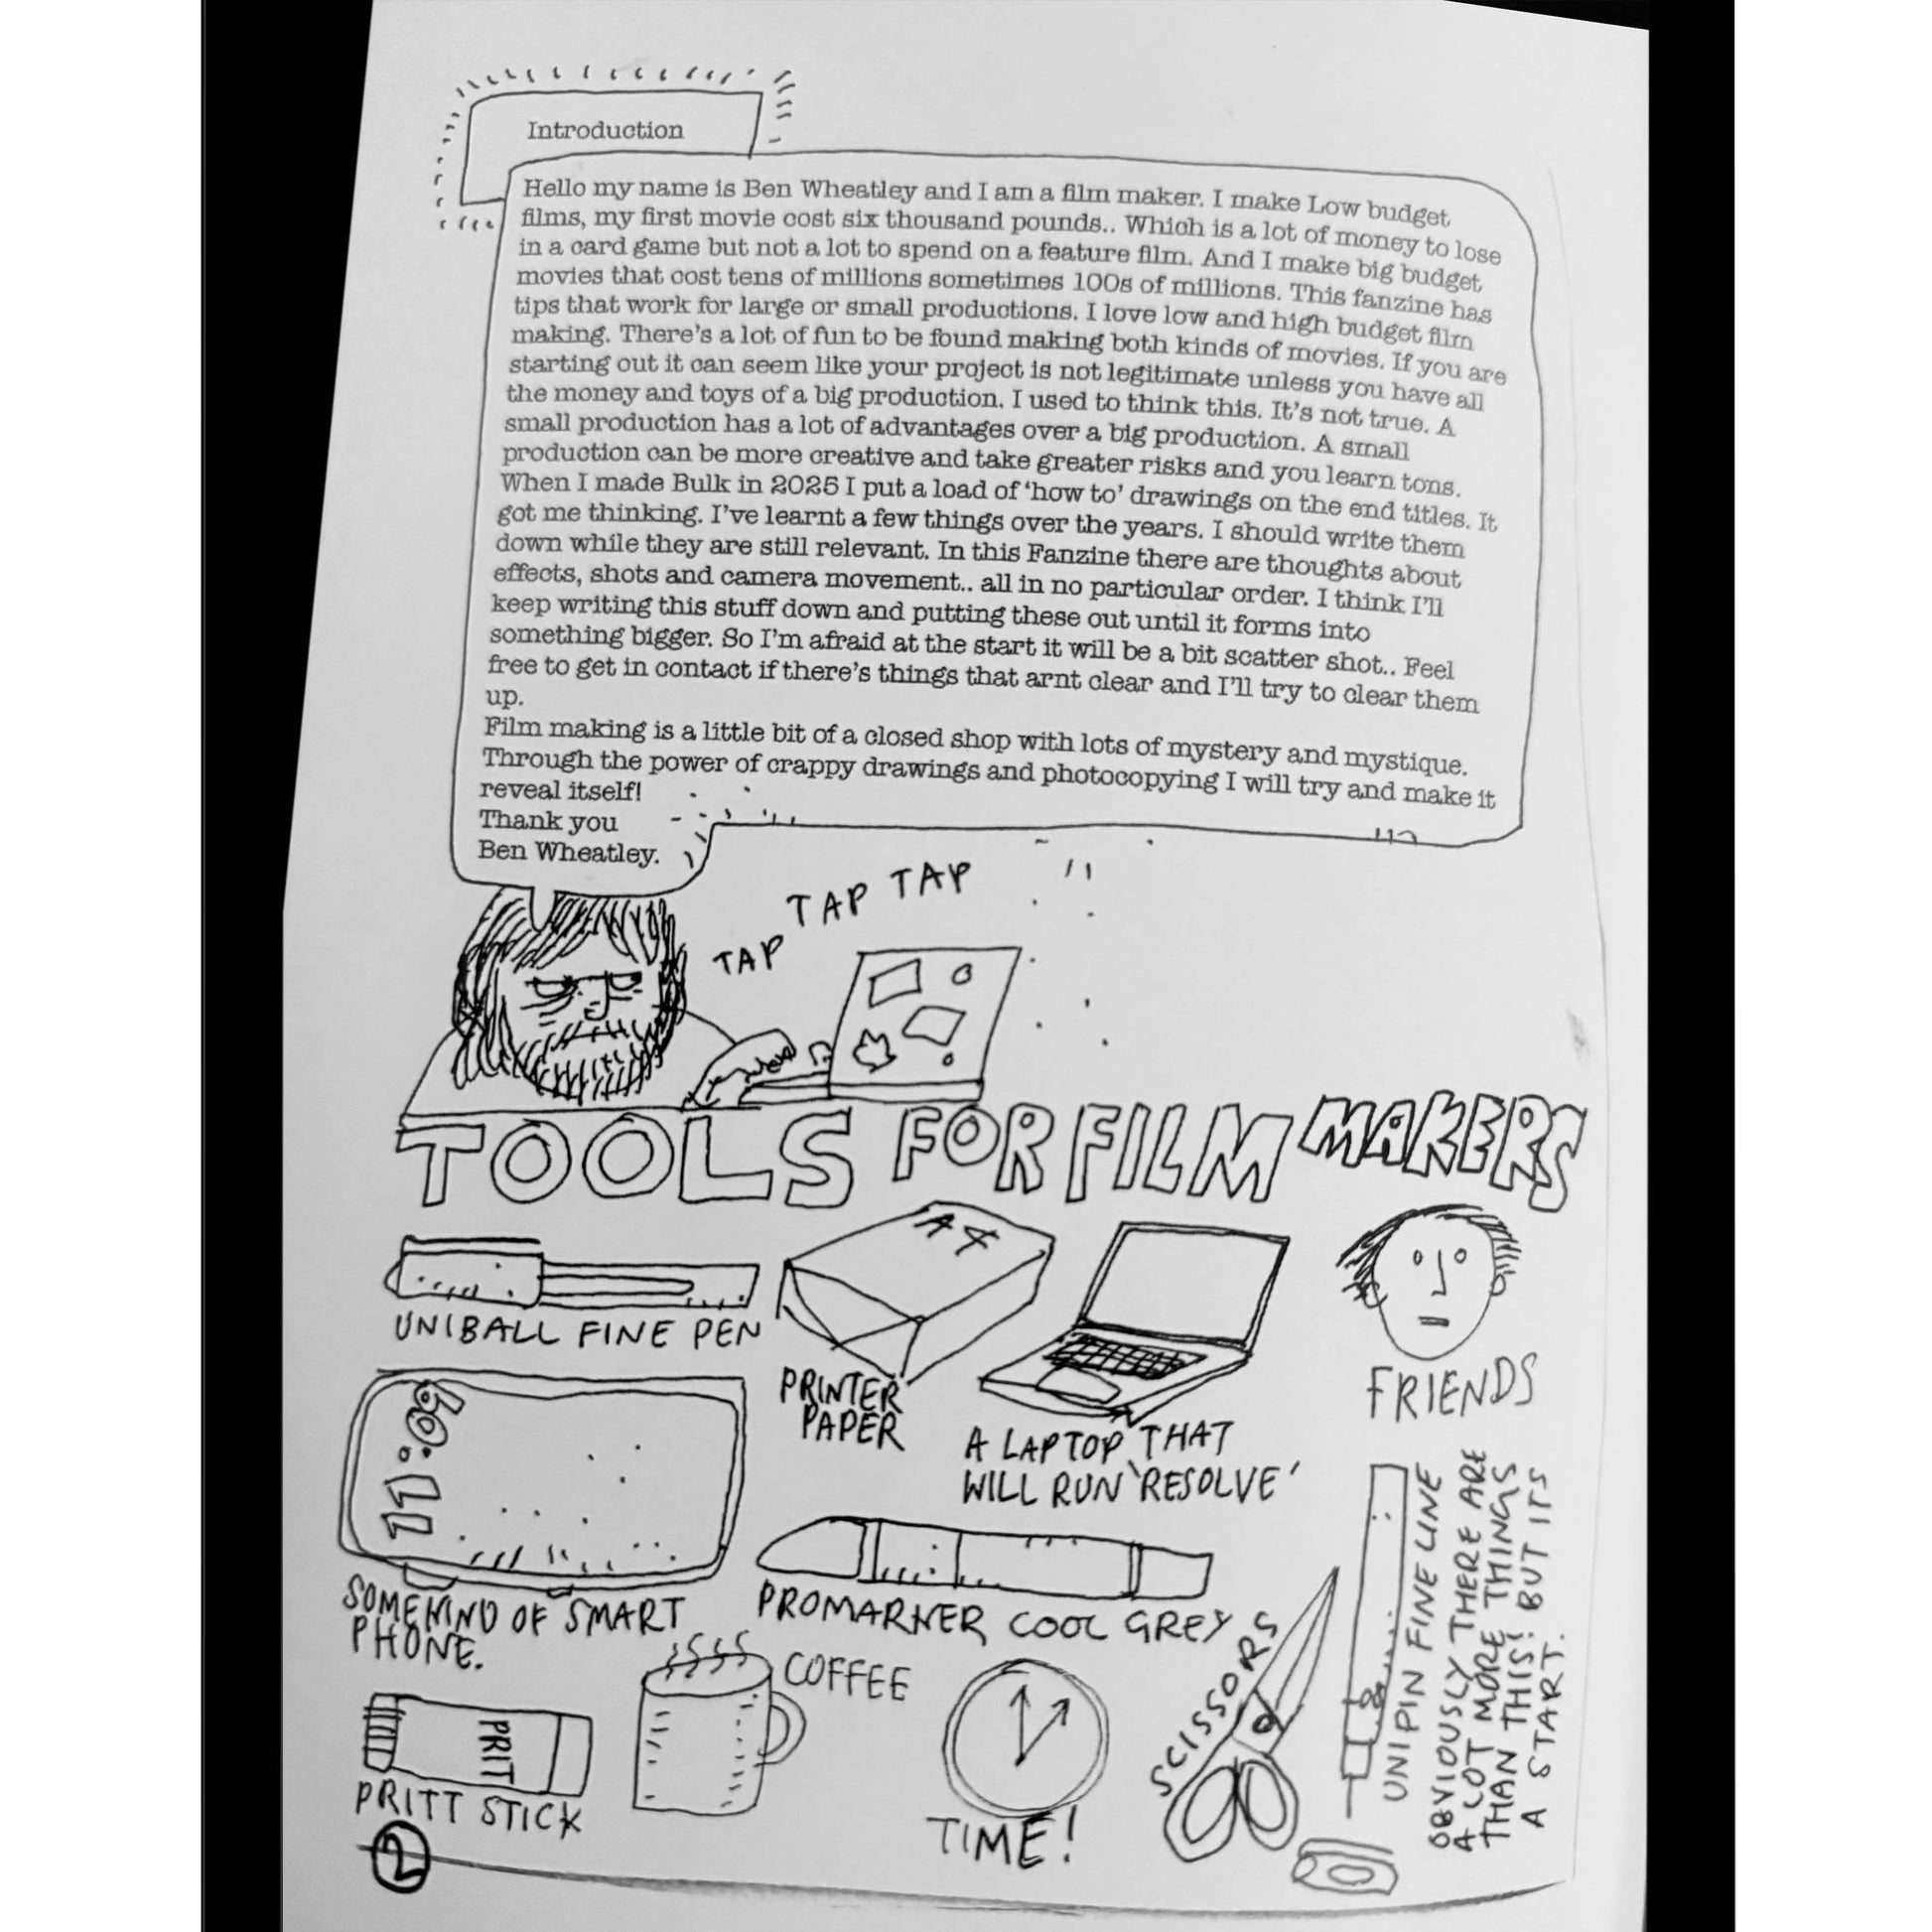 Introduction
Hello my name is Ben Wheatley and I am a film maker. I make Low budget
films, my first movie cost six thousand pounds.. Which is a lot of money to lose
in a card game but not a lot to spend on a feature film. And I make big budget
movies that cost tens of millions sometimes 100s of millions. This fanzine has
tips that work for large or small productions. I love low and high budget film
making. There's a lot of fun to be found making both kinds of movies. If you are
starting out it can seem like your project is not legitimate unless you have all
the money and toys of a big production. I used to think this. It's not true. A
small production has a lot of advantages over a big production. A small
production can be more creative and take greater risks and you learn tons.
When I made Bulk in 2025 I put a load of 'how to' drawings on the end titles. It
got me thinking. I've learnt a few things over the years. I should write them
down while they are still relevant. In this Fanzine there are thoughts about
effects, shots and camera movement.. all in no particular order. I think I'll
keep writing this stuff down and putting these out until it forms into
something bigger. So I'm afraid at the start it will be a bit scatter shot.. Feel
free to get in contact if there's things that arnt clear and I'll try to clear them
up.
Film making is a little bit of a closed shop with lots of mystery and mystique.
Through the power of crappy drawings and photocopying I will try and make it
reveal itself!
Thank you
Ben Wheatley.
TAP TAP TAP
TOOLS FOR FILM MAKERS
UNIBALL FINE PEN
A4
PRINTER
PAPER
A LAPTOP THAT
WILL RUN 'RESOLVE'
FRIENDS
11:09
SOMEKIND OF SMART
PHONE.
PROMARKER COOL GREY
PRITT
PRITT STICK
COFFEE
TIME!
SCISSORS
UNIPIN FINE LINE
OBVIOUSLY THERE ARE
A LOT MORE THINGS
THAN THIS! BUT ITS
A START.
2